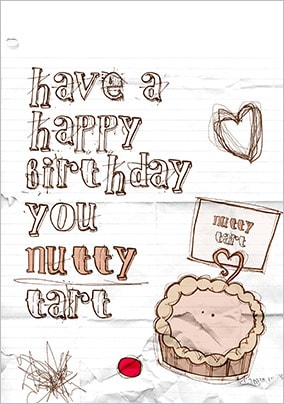 have a
happy
birthday
you
nutty
tart
nutty
tart